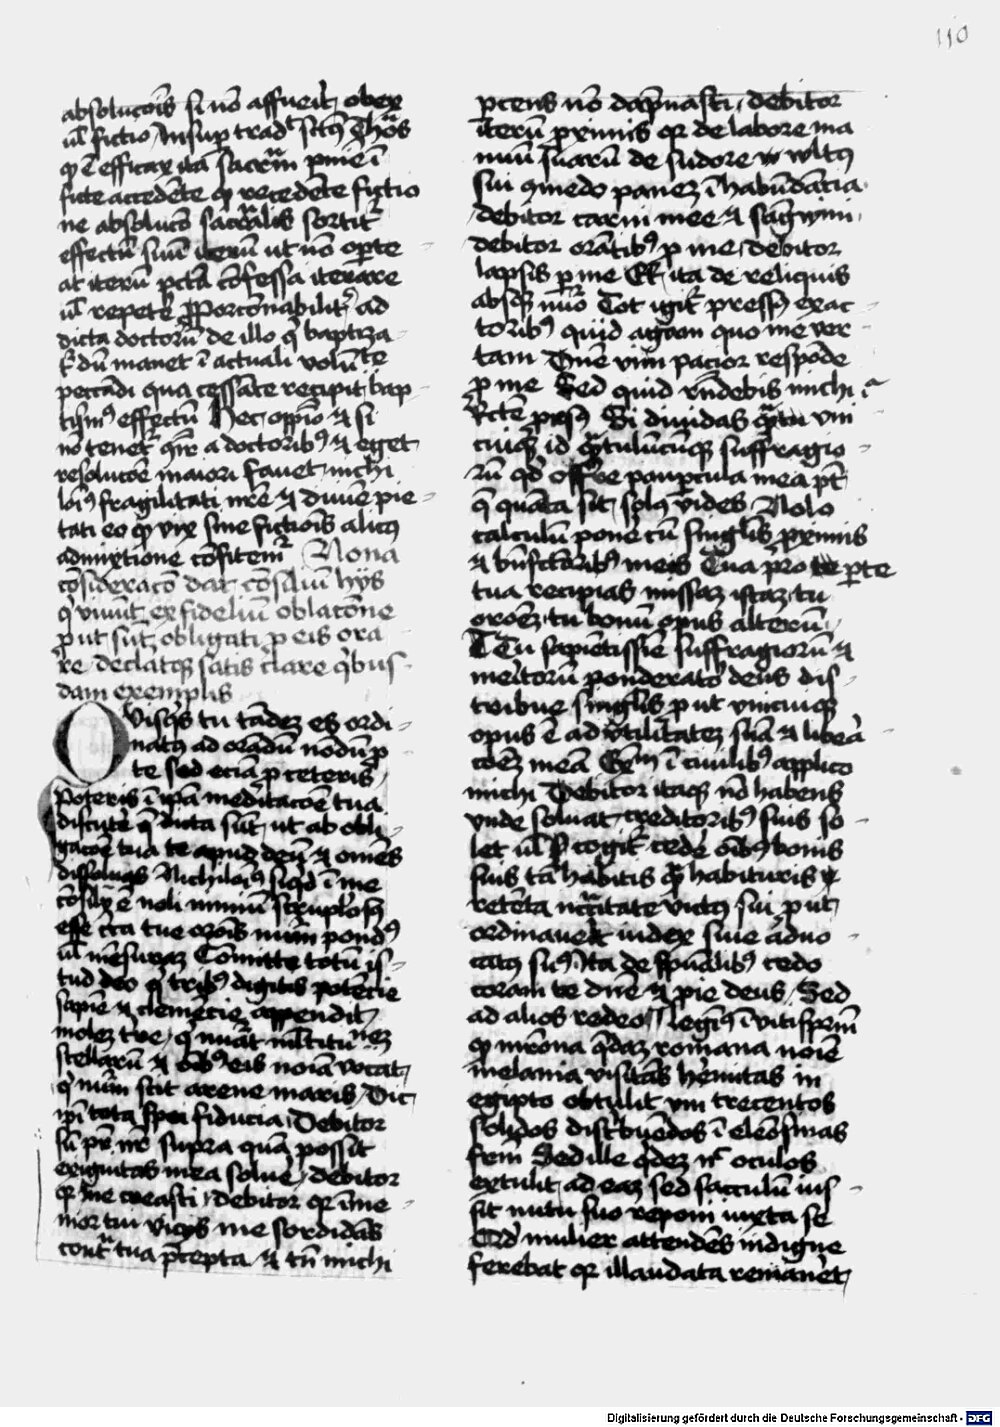 110
absolucōis si nō affuerit obex
ul fictio Insup tradt sctūs Thōs
q̄ ē efficax ita sacrm̄ pn̄īe ī
ficte accedēte q̄ recedēte fictio
ne absolucō sacr̄alis sortit̄
effectū suū iterū ut nō oporte
at iterū pctā cōfessa iterare
ul repetē Proporcōnabilit̄ ad
dicta doctorū de illo q̄ baptiza
t̄ dū manet ī actuali volūte
peccādi qua cessāte recipit bap
tismꝰ effectū Hec oppīo ⁊ si
nō tenet̄ a doctoribꝰ ⁊ eget
resolucōe maiori fauet michi
loīꝰ fragilitati nr̄e ⁊ diuīe pie
tati eo q̄ vix sine fictiōis alicꝰ
admixtione cōfitemr̄ Nona
cōsideracō dat cōsiliū hijs
q̄ viuūt ex fideliū oblatōne
put sūt obligati p eis ora
re declatqꝫ satis clare q̄bus
dam exemplis
Quisq̄s tu tādez es ordi
natꝰ ad orādū nodū p
te sed eciā p ceteris
Poteris ī ipā meditacōe tua
discute q̄ dicta sūt ut ab obli
gacōe tua te apud deū ⁊ omēs
dissoluas Nichiloīꝰ siq̄d ī me
cōsilij ē noli nimiū scrupl̄osꝰ
esse cͥca tue orōis nūm pondꝰ
ul mēsuraz Comitte totū is
tud deo q̄ tribꝰ digitis potēcie
sapīe ⁊ clemēcie appendit
molez tre q̄ nūat ml̄titudīez
stellarū ⁊ oībꝰ eis noīa vocat
q̄ nūm scit arene maris Dic
ipī tota spei fiducia Debitor
sū pr̄ nr̄ supra quā possit
exiguitas mea solue debitor
qr me creasti debitor qr īme
mor tui vicijs me sordidās
contr̄ tua p̄cepta ⁊ tn̄ michi
p̄cens nō dāpnasti debitor
iterū pximis qr de labore ma
nuū suarū de sudore wltꝰ
sui q̄medo panez ī habūdācia
debitor carni mee ⁊ sāgwini
debitor orātibꝰ p me debitor
lapsis p me Et ita de reliquis
absqꝫ nūo Tot igit̄ pressꝰ exac
toribꝰ quid agam quo me ver
tam Dn̄e vim pacior respōde
p me Sed quid rn̄debis michi
Si diuidas q̄tū vni
cuiqꝫ id q̄tulūcūqꝫ suffragio
rū qd̄ offerre paupcula mea pt̄
q̄ quāta sit solꝰ vides Nolo
calculū ponē cū singl̄is pximis
⁊ bn̄fctōribꝰ meis Tua p̄ro te p̄te
tua recipias missaz istaz tu
orōez tu bonū opus alterū
Tu sapiētissīe suffragiorū ⁊
meritorū ponderator deus dis
tribue singl̄is put vnicuiqꝫ
opus ē ad vtilitatez suā ⁊ liberā
cōez meā Exm ī ciuilibꝰ applico
michi Debitor itaqꝫ nō habens
vnde soluat creditoribꝰ suis so
let ul cogit̄ cedē oībꝰ bonis
suis tā habitis q̄ habituris
retēta nccitate victꝰ sui put
ordinauerit iudex siue aduo
catꝰ suꝰ Ita de spūalibꝰ cedo
coram te dn̄e ⁊ pie deus Sed
ad alios redeo legimꝰ ī vitisp̄rm
q̄ mr̄ona q̄daz romana noīe
melania visitās hēmitas in
egipto obtulit vni trecentos
solidos distͥbuēdos ī eleōsinas
fem Sed ille q̄dez nͨ oculos
extulit ad eaz sed sacculū ius
sit nutu suo reponi iuxta se
Qd̄ mulier attendēs indigne
ferebat qr illaudata remanēt
Digitalisierung gefördert durch die Deutsche Forschungsgemeinschaft - DFG